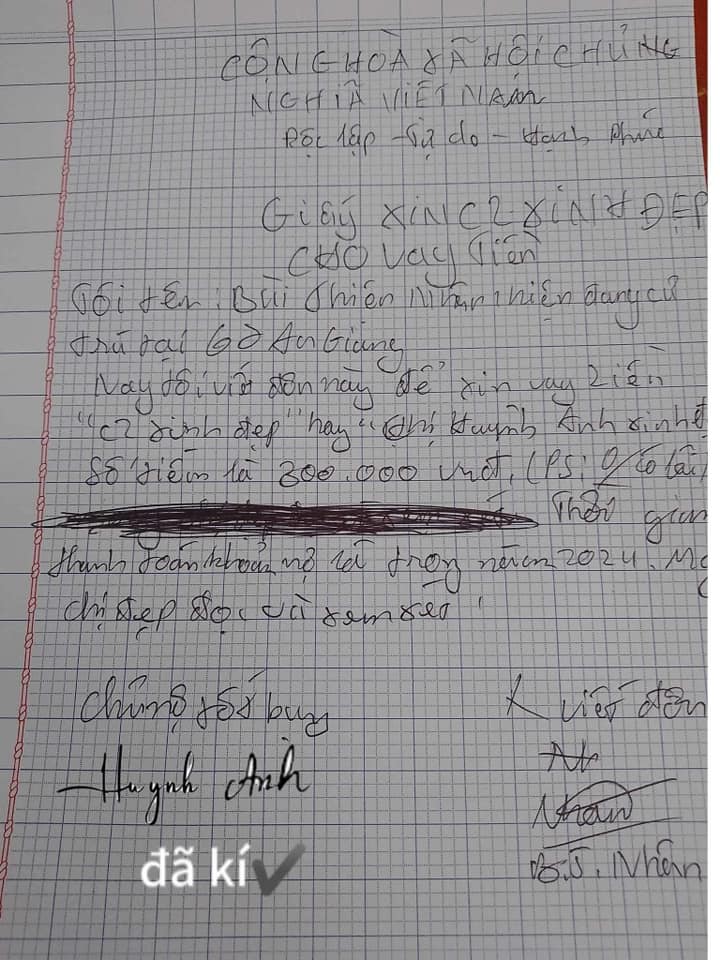 CỘNG HOÀ XÃ HỘI CHỦNG
NGHĨA VIỆT NAM
Độc lập - Tự do - Hạnh Phúc
Giấy XIN C2 XINH ĐẸP
CHO Vay Tiền
Tôi tên: Bùi Thiện Nhân, hiện đang cư
trú tại Gò An Giang
Nay tôi viết đơn này để xin vay tiền
"c2 xinh đẹp" hay "Chị Huỳnh Anh xinh đ
Số tiền là 300.000 vnđ, (PS: 0 có lãi)
Thời gian
thanh toán khoản nợ là trong năm 2024. Mo
chị đẹp đọc và xem xét!
Chủng tối bụy
K viết đơn
Huynh Anh
Nhân
B.T. Nhân
đã kí✔